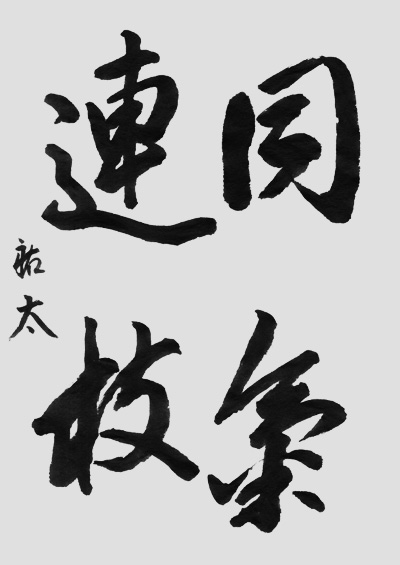 同氣
連枝
祐太